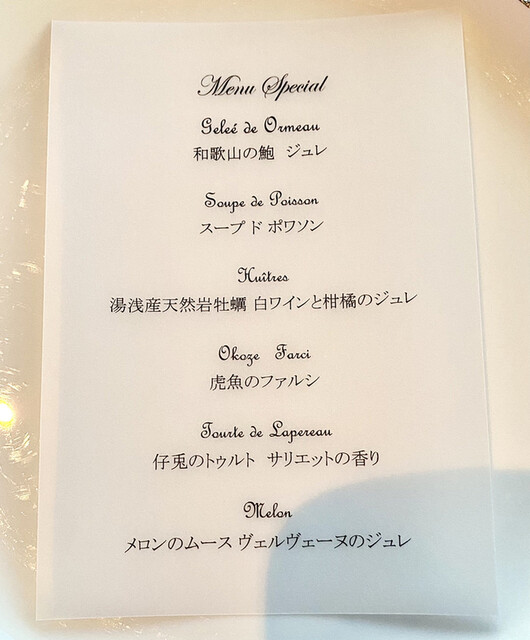 Menu Special
Geleé de Ormeau
和歌山の鮑 ジュレ
Soupe de Poisson
スープ ド ポワソン
Huîtres
湯浅産天然岩牡蠣 白ワインと柑橘のジュレ
Okoze Farci
虎魚のファルシ
Tourte de Lapereau
仔兎のトゥルト サリエットの香り
Melon
メロンのムース ヴェルヴェーヌのジュレ